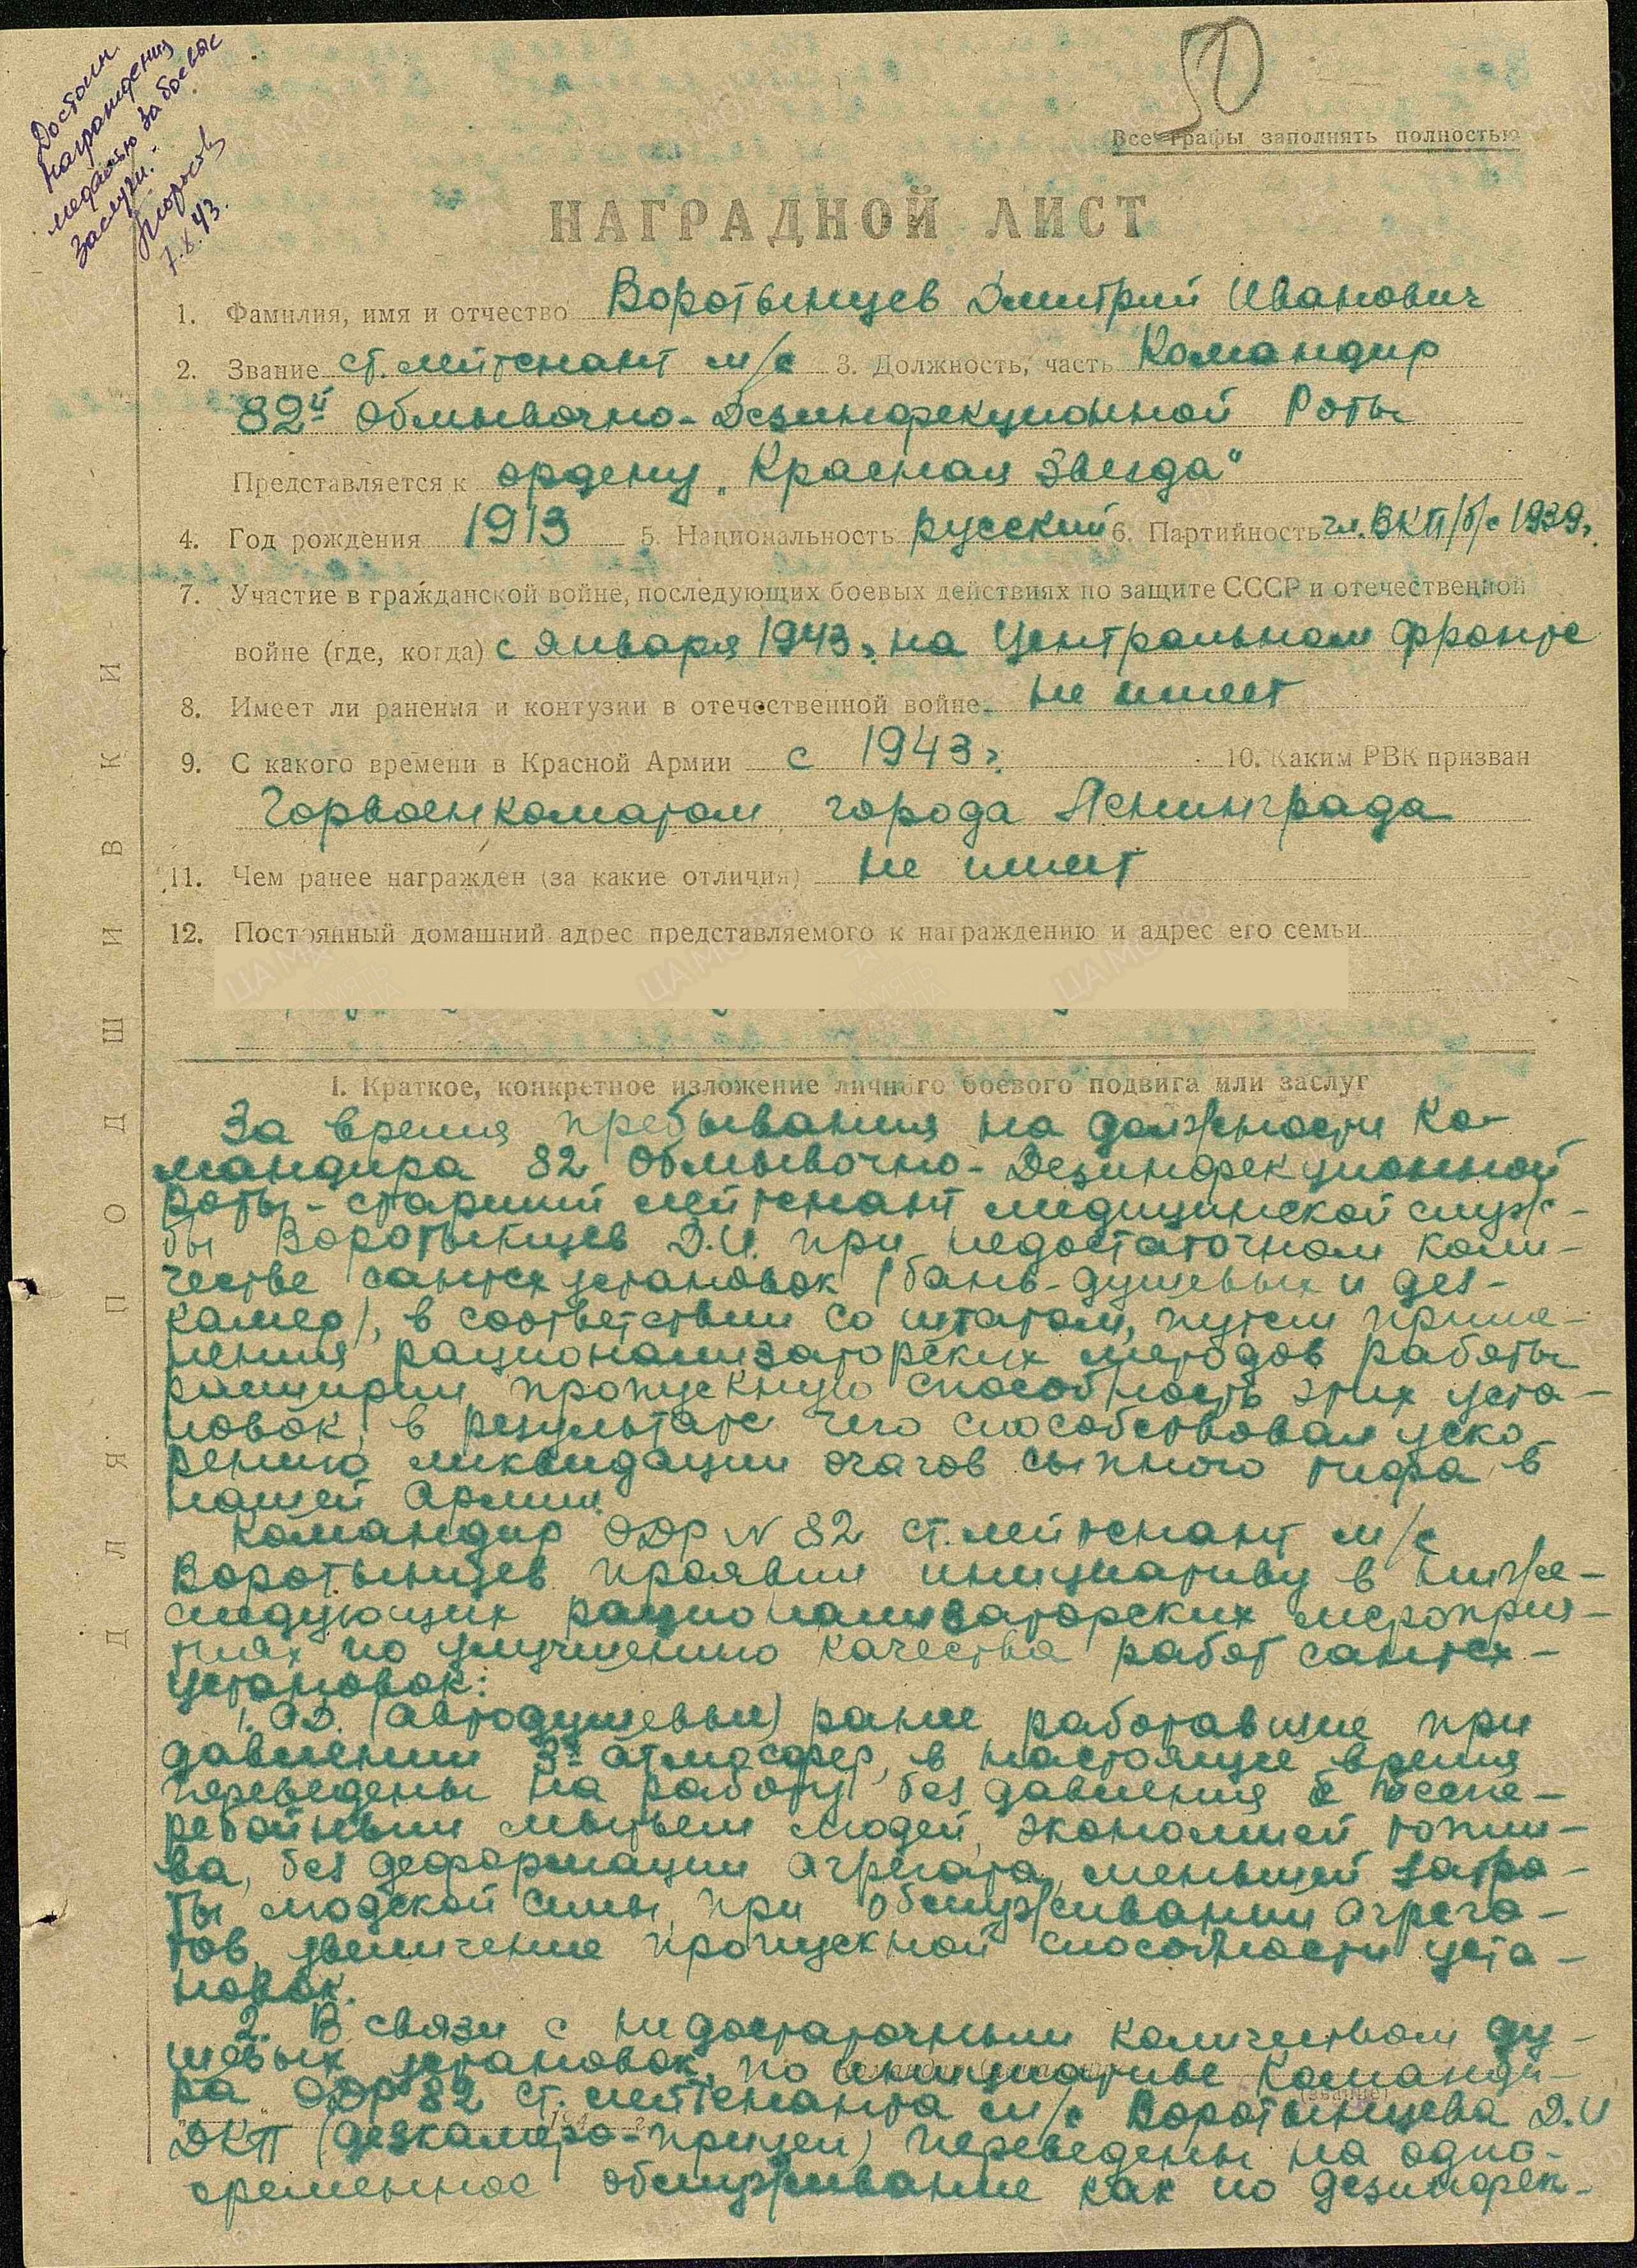 50
Достоин
награждения
медалью За боевые
заслуги.
7.X.43.
Все графы заполнять полностью
НАГРАДНОЙ ЛИСТ
1. Фамилия, имя и отчество Воротынцев Дмитрий Иванович
2. Звание ст. лейтенант м/с 3. Должность, часть Командир
82й Обмывочно-Дезинфекционной Роты
Представляется к ордену „Красная Звезда“
4. Год рождения 1913 5. Национальность русский 6. Партийность чл. ВКП/б/с 1939г.
7. Участие в гражданской войне, последующих боевых действиях по защите СССР и отечественной
войне (где, когда) с Января 1943 г. на Центральном фронте
8. Имеет ли ранения и контузии в отечественной войне не имеет
9. С какого времени в Красной Армии с 1943 г. 10. Каким РВК призван
Горвоенкоматом города Ленинграда
11. Чем ранее награжден (за какие отличия) не имеет
12. Постоянный домашний адрес представляемого к награждению и адрес его семьи
ДЛЯ ПОДШИВКИ
I. Краткое, конкретное изложение личного боевого подвига или заслуг
За время пребывания на должности Ко-
мандира 82 Обмывочно-Дезинфекционной
роты - старший лейтенант медицинской служ-
бы Воротынцев Д.И. при недостаточном коли-
честве сантех установок (бань-душевых и дез-
камер), в соответствии со штатом, путем приме-
нения рационализаторских методов работы
расширил пропускную способность этих уста-
новок, в результате чего способствовал уско-
рению ликвидации очагов сыпного тифа в
нашей Армии.
Командир ОДР N 82 ст. лейтенант м/с
Воротынцев проявил инициативу в ниже-
следующих рационализаторских мероприя-
тиях по улучшению качества работ сантех-
установок:
1. АД. (Автодушевые) ранее работавшие при
давлении 3х атмосфер, в настоящее время
переведены на работу без давления с бесп-
ребойным мытьем людей, экономией топли-
ва, без деформации агрегата, меньшей затра-
ты людской силы при обслуживании агрега-
тов, увеличение пропускной способности уста-
новок.
2. В связи с недостаточным количеством ду-
шевых установок, по инициативе Команди-
ра ОДР 82 ст. лейтенанта м/с Воротынцева Д.И
(звание)
ДКП (дезкамеро-прицеп) переведены на одно-
временное обслуживание как по дезинфек-